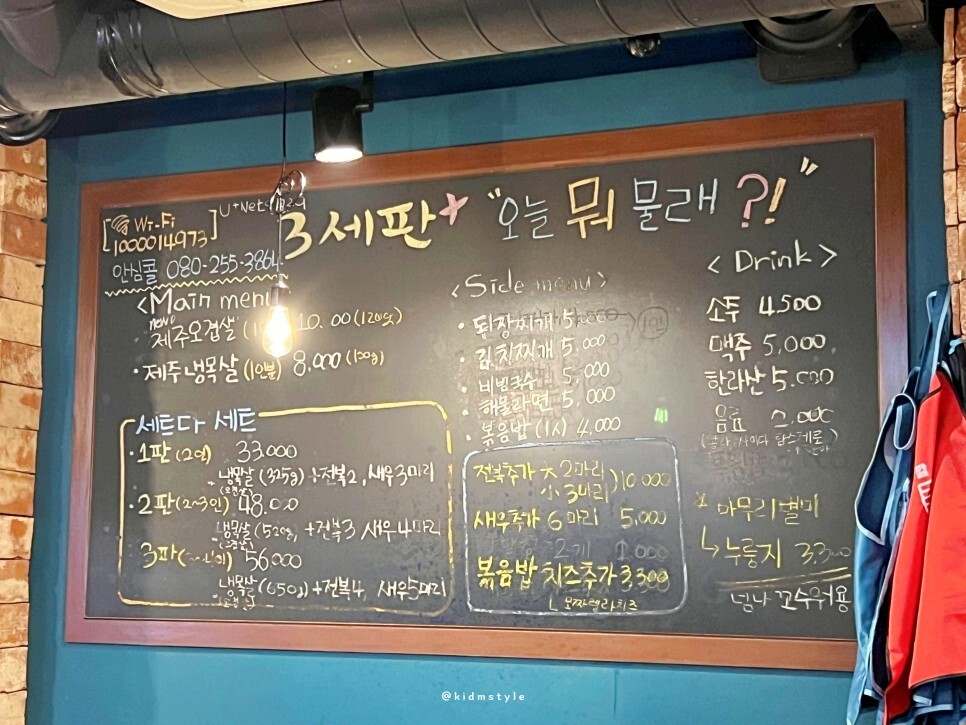 Wi-Fi
1000014973
안심콜 080-255-3864
3세판+ "오늘 뭐 물래?!"
<Main menu
new
제주오겹살 10.00 (120g)
·제주냉목살 (1인분) 8.000 (100g)
세트다 세트
·1판 (2인) 33.000
냉목살 (325g) +전복2, 새우3마리
·2판 (2~3인) 48.000
냉목살 (520g) +전복3 새우4마리
·3판 56000
냉목살 (650g) +전복4 새우5마리
<Side menu>
·된장찌개 5,000
·김치찌개 5,000
·비빔국수 5,000
·해물라면 5,000
·볶음밥 (1人) 4,000
전복추가 大 2마리
小 3마리) 10.000
새우추가 6마리 5,000
2개 1000
볶음밥 치즈추가 3,300
ㄴ모짜렐라치즈
<Drink>
소주 4,500
맥주 5,000
한라산 5.000
음료 2.000
마무리별미
↳누룽지 3,300
넘나 꼬수워용
@kidmstyle